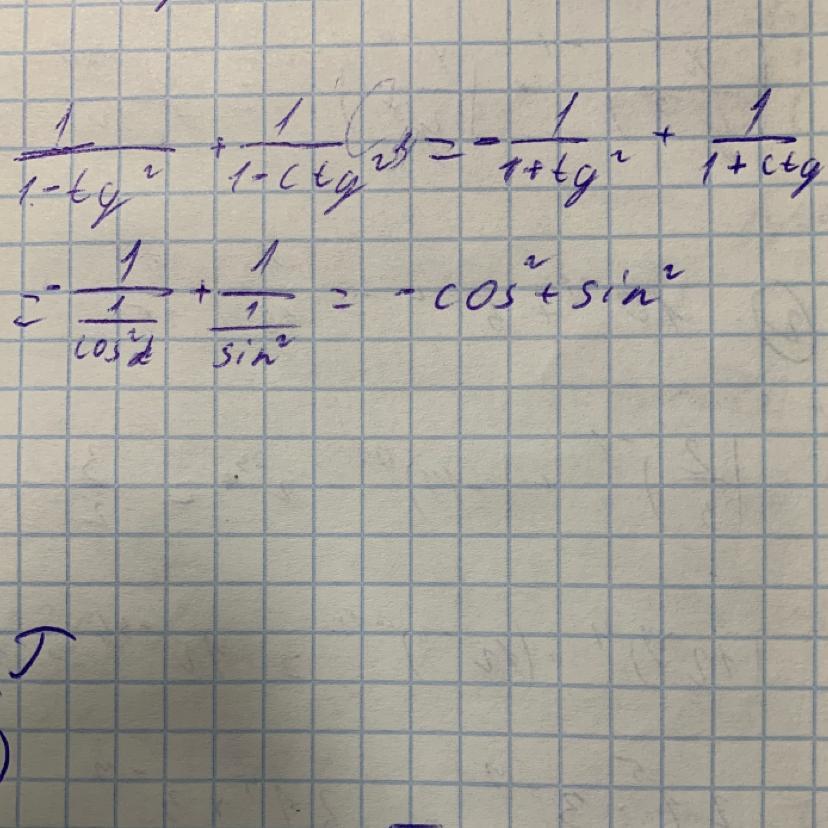 1/(1-tg²) + 1/(1-ctg²) = -1/(1+tg²) + 1/(1+ctg
= -1/(1/cos²α) + 1/(1/sin²) = -cos² + sin²